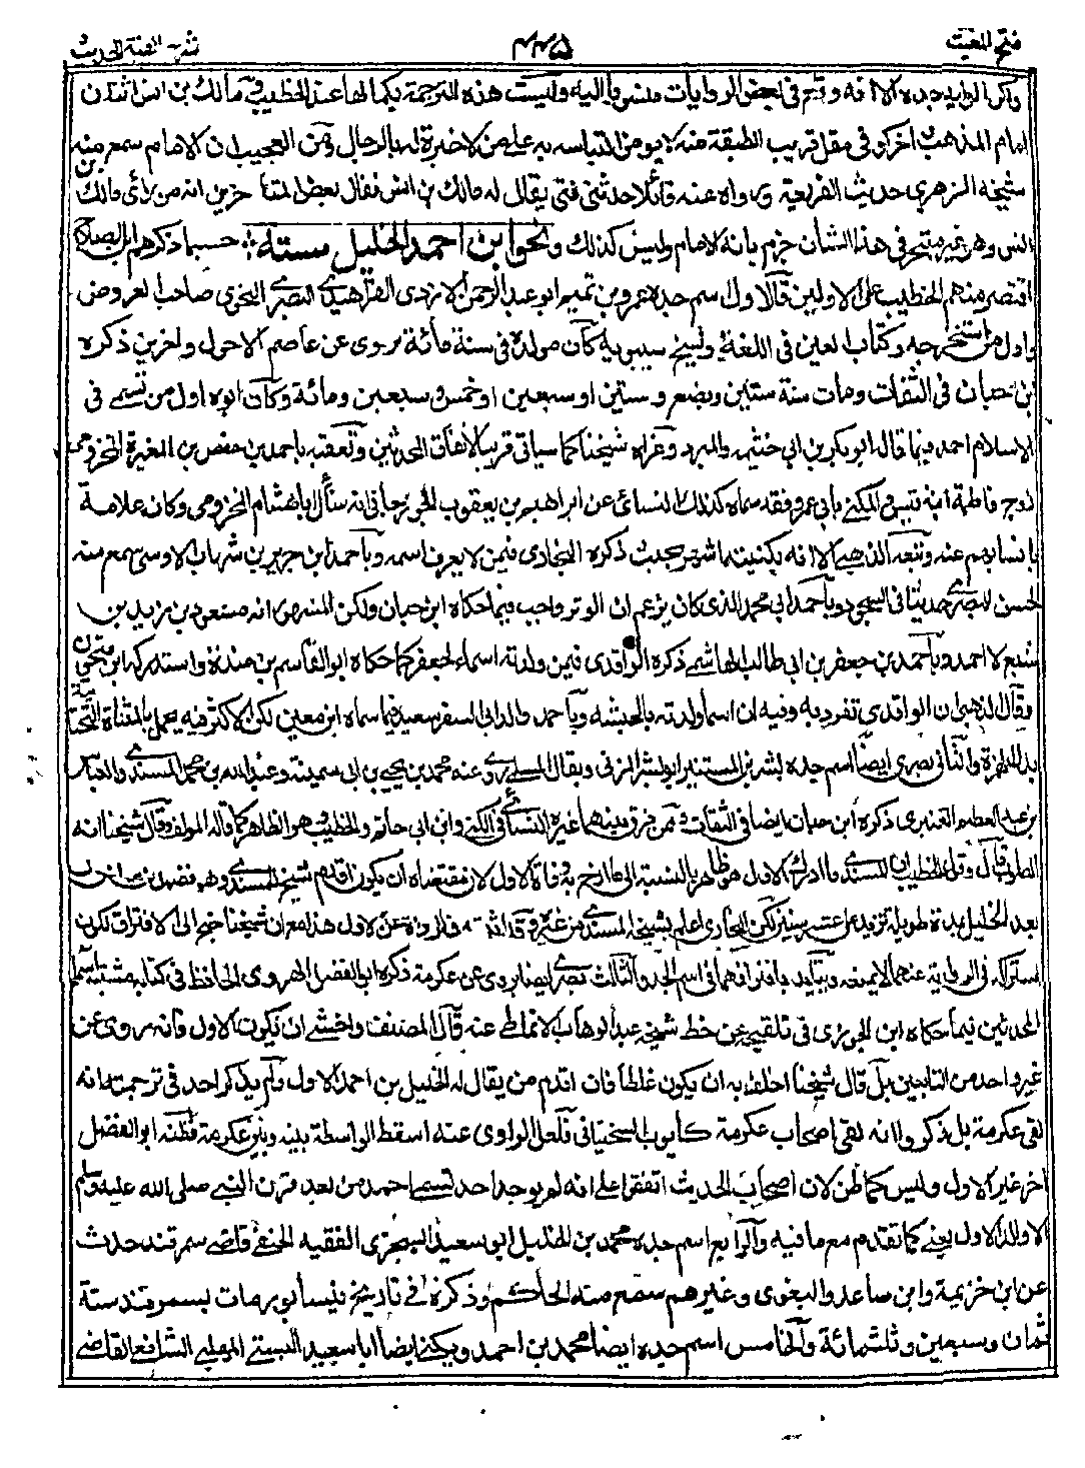 فتح المغيث ٤٤٥ شرح الفية الحديث
واكر الوليد جده الا انه وقع في بعض الروايات منسوبا اليه وليست هذه الترجمة بكمالها عند الخطيب في مالك بن انس اثنان
امام المذهب واخر كوفي مقل قريب الطبقة منه لا يومن التباسه به على من لا خبرة له بالرجال ومن العجيب ان الامام سمع منه
شيخه الزهري حديث الفريعة ورواه عنه قائلا حدثني فتى يقال له مالك بن انس فقال بعض المتاخرين انه من رأى مالك بن
انس وهو غير متبحر في هذا الشان جزم بانه الامام وليس كذلك ونحو ابن احمد الخليل ستة حسبما ذكرهم ابن الصلاح
اقتصر منهم الخطيب على الاولين فالاول اسم جده عمرو بن تميم ابو عبد الرحمن الازدي الفراهيدي البصري النحوي صاحب العروض
واول من استخرجه وكتاب العين في اللغة وشيخ سيبويه كان مولده في سنة مائة يروى عن عاصم الاحول واخرين ذكره
بن حبان في الثقات ومات سنة ستين وبضع وستين او سبعين او خمس وسبعين ومائة وكان ابوه اول من تسمى في
الاسلام احمد فيما قاله ابو بكر بن ابي خثيمه والمبرد وعزاه شيخنا كما سياتي قريبا لاتفاق المحدثين وتعقبه باحمد بن حفص بن المغيرة المخزومي
زوج فاطمة ابنة قيس المكنى بابي عمرو فقد سماه كذلك النسائي عن ابراهيم بن يعقوب الجوزجاني انه سأل ابا هشام المخزومي وكان علامة
بانسابهم عنه وتبعه الذهبي الا انه بكنيته اشتهر بحيث ذكره البخاري فيمن لا يعرف اسمه وباحمد ابن جرير بن شهاب الاوسي سمع منه
الحسن البصري حديثا في السجود وباحمد ابي محمد الذي كان يزعم ان الوتر واجب فيما حكاه ابن حبان ولكن المشهور انه مسعود بن زيد بن
سبيع لا احمد وباحمد بن جعفر بن ابي طالب الهاشمي ذكره الواقدي فيمن ولدته اسماء لجعفر كما حكاه ابو القاسم بن مندة واستدركه ابن فتحون
وقال الذهبي ان الواقدي تفرد به وفيه ان اسما ولدته بالحبشه وباحمد والد ابي السفر سعيد فيما سماه ابن معين لكن الاكثر فيه يحمد بالمثناة التحتية
بدل الهمزة والثاني بصري ايضا اسم جده بشر بن المستنير ابو بشر المزني ويقال السلمي روى عنه محمد بن يحيى بن ابي سمينة وعبد الله بن محمد المسندي والعباس
بن عبد العظيم العنبري ذكره ابن حبان ايضا في الثقات وممن فرق بينهما غيره النسائي في الكنى وابن ابي حاتم والخطيب وهو الظاهر كما قاله المولف وقال شيخنا انه
الصواب قال وقول الخطيب ان المسندي ما ادرك الاول هو ظاهر بالنسبة الى تاريخ وفاة الاول لان مقتضاه ان يكون اقدم شيخ المسندي وهو فضيل بن
بعد الخليل بمدة طويلة تزيد على عشر سنين لكن البخاري اعلم بشيخه المسندي من غيره وقد اثبت له الرواية عن الاول هذا مع ان شيخنا جنح الى الافتراق لكون
مستركه في الرواية عنهما لا يمنعه ويتايد بافتراقهما في اسم الجد والثالث بصري ايضا روى عن عكرمة ذكره ابو الفضل الهروي الحافظ في كتابه مشتبه اسما
المحدثين فيما حكاه ابن الجوزي في تلقيحه عن خط شيخه عبد الوهاب الانماطي عنه قال المصنف واخشى ان يكون الاول فانه روى عن
غير واحد من التابعين بل قال شيخنا اخلق به ان يكون غلطا فان اقدم من يقال له الخليل بن احمد الاول ولم يذكر احد في ترجمته انه
لقي عكرمة بل ذكروا انه لقي اصحاب عكرمة كايوب السختياني فلعل الراوي عنه اسقط الواسطة بينه وبين عكرمة فظنه ابو الفضل
اخر غير الاول وليس كما ظن لان اصحاب الحديث اتفقوا على انه لم يوجد احد تسمى احمد من بعد قرن النبي صلى الله عليه وسلم
الا والد الاول يعني كما تقدم مع ما فيه والرابع اسم جده محمد بن الخليل ابو سعيد السجزي الفقيه الحنفي قاضي سمرقند حدث
عن ابن خزيمة وابن صاعد والبغوي وغيرهم سمع منه الحاكم وذكره في تاريخ نيسابور مات بسمرقند سنة
ثمان وسبعين وثلثمائة والخامس اسم جده ايضا محمد بن احمد ويكنى ايضا ابا سعيد البستي المهلبي الشافعي القاضي